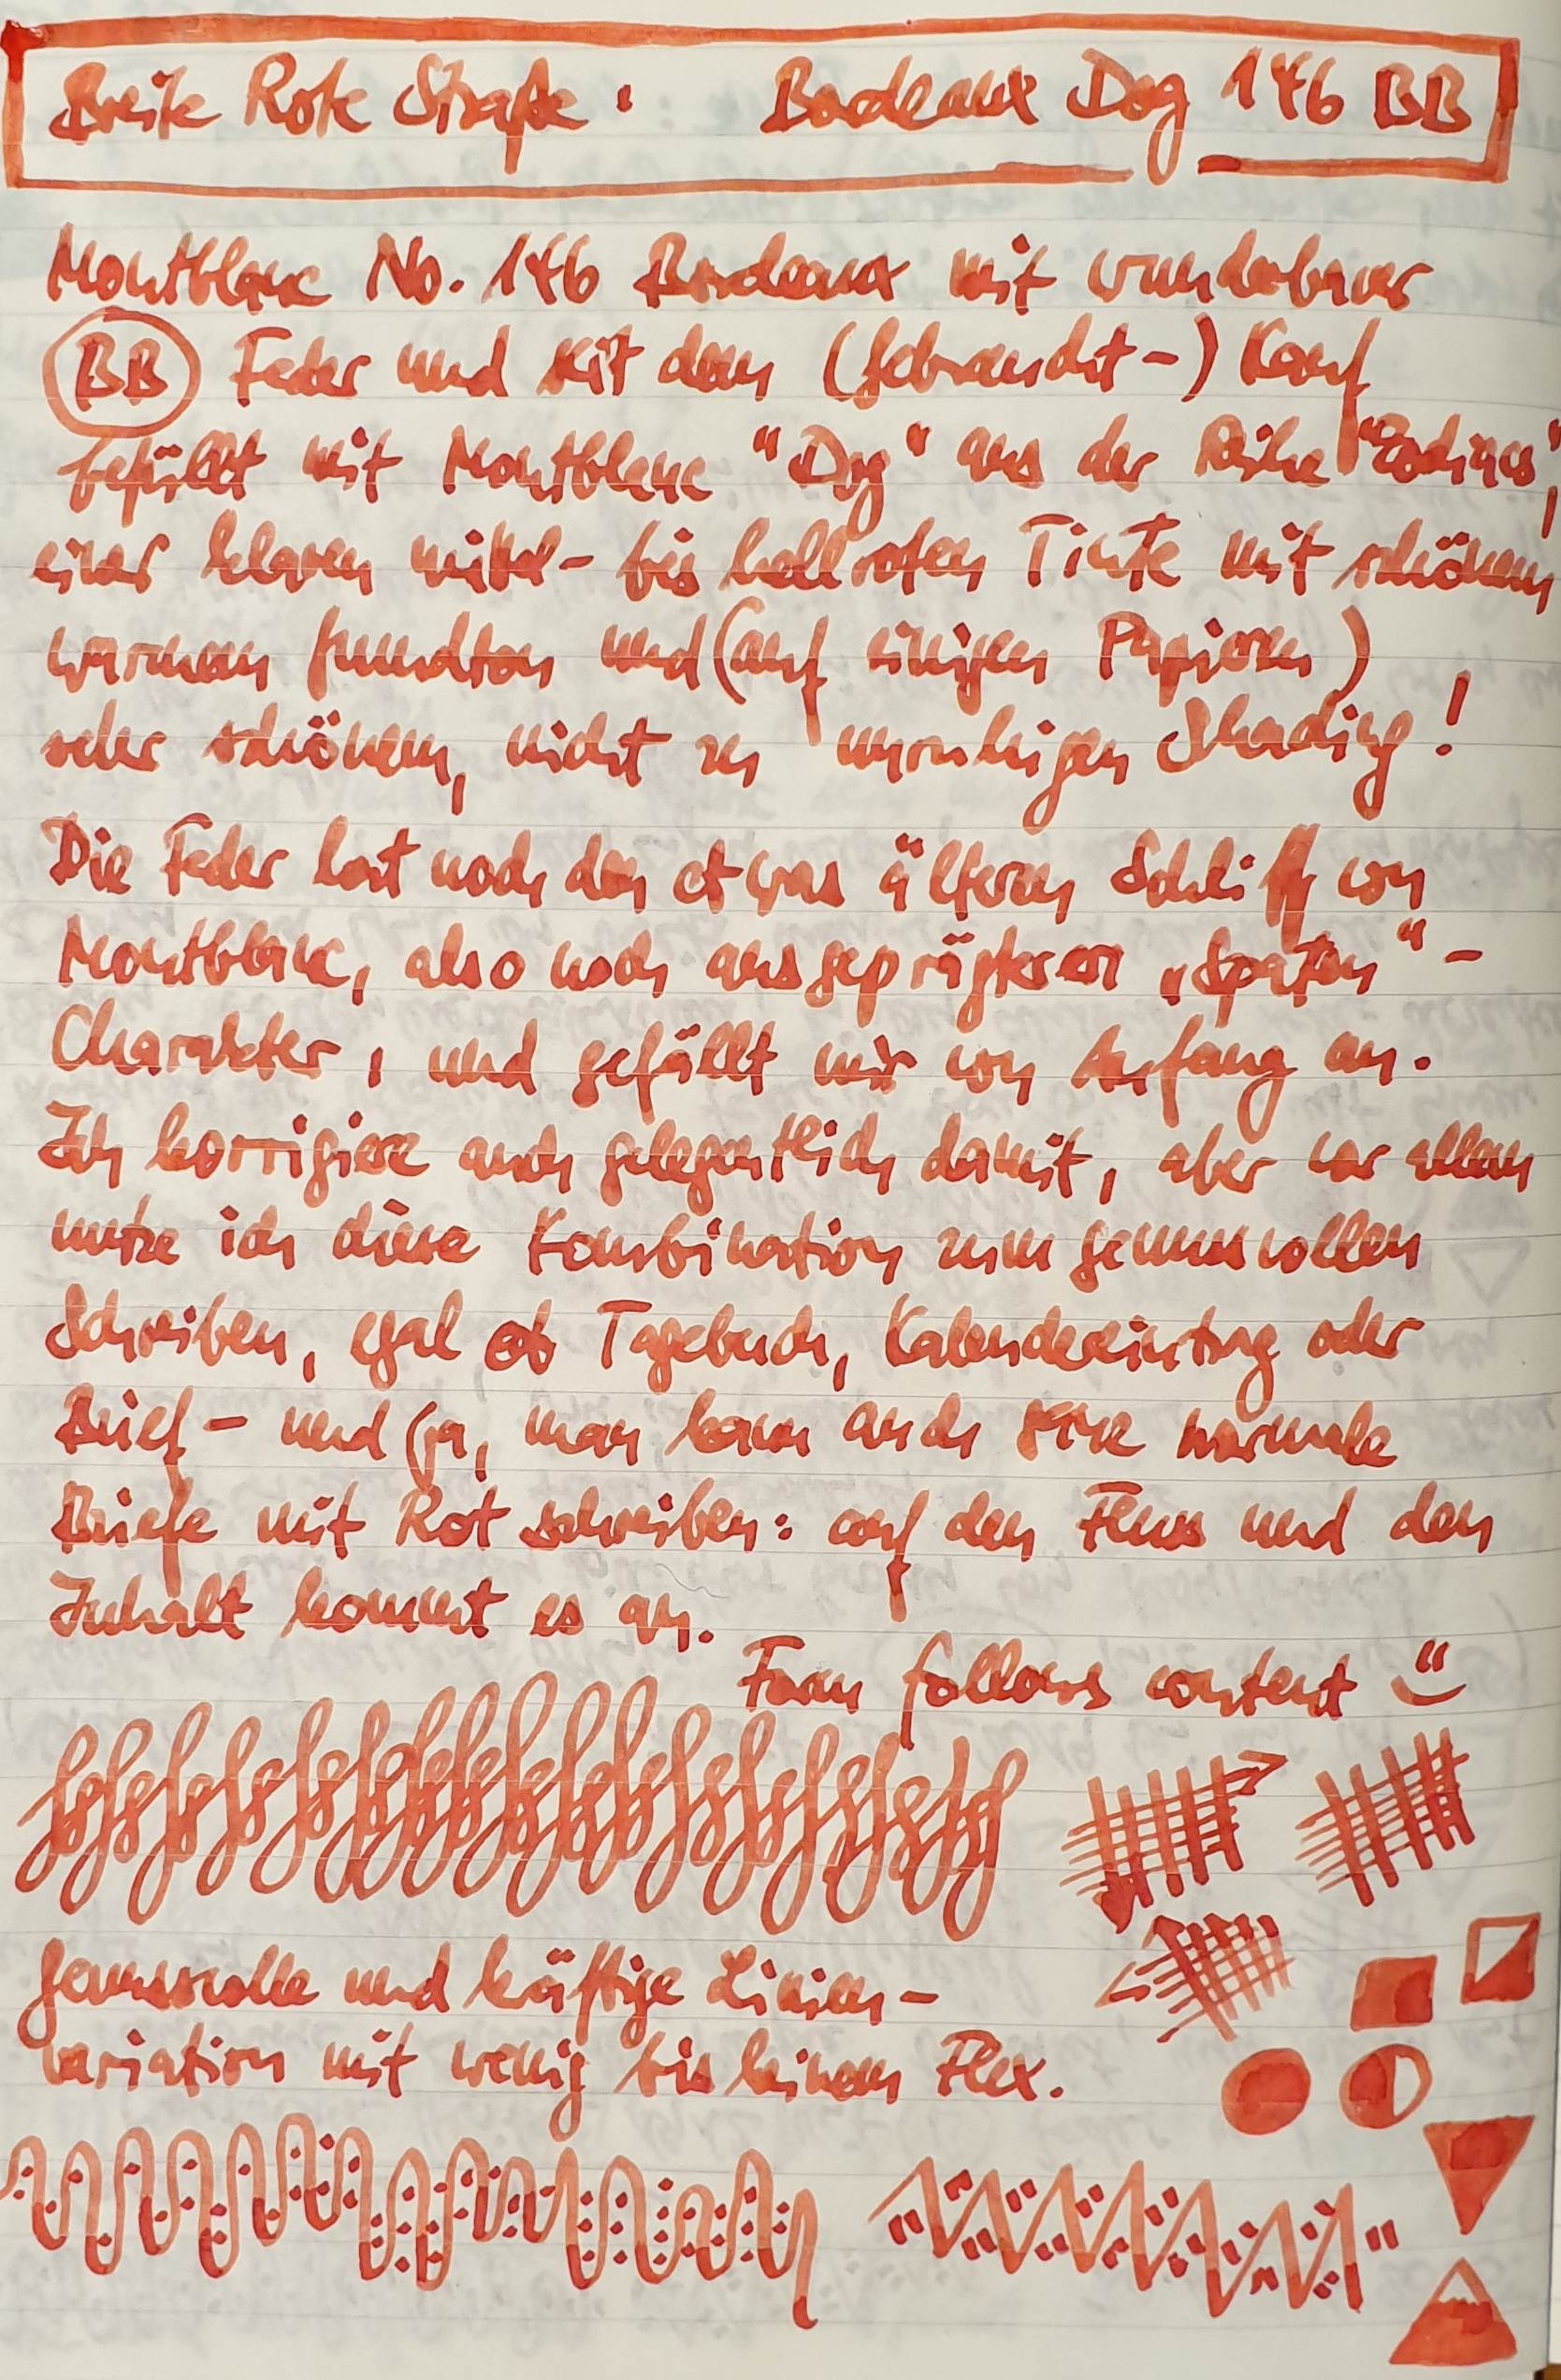 Breite Rote Straße: Bordeaux Dog 146 BB
Montblanc No. 146 Bordeaux mit wunderbarer
BB Feder und seit dem (Gebraucht-) Kauf
befüllt mit Montblanc "Dog" aus der Reihe "Zodiacs",
einer klaren mittel- bis hellroten Tinte mit schönem
warmem Grundton und (auf einigen Papieren)
sehr schönem, nicht zu unruhigen Shading!
Die Feder hat noch den etwas älteren Schliff von
Montblanc, also noch ausgeprägterer „Spaten“-
Charakter, und gefällt mir von Anfang an.
Ich korrigiere auch gelegentlich damit, aber vor allem
nutze ich diese Kombination zum genussvollen
Schreiben, egal ob Tagebuch, Kalendereintrag oder
Brief - und ja, man kann auch normale
Briefe mit Rot schreiben: auf den Fluss und den
Inhalt kommt es an.
Form follows content
Genussvolle und kräftige Linien-
variation mit wenig bis keinem Flex.